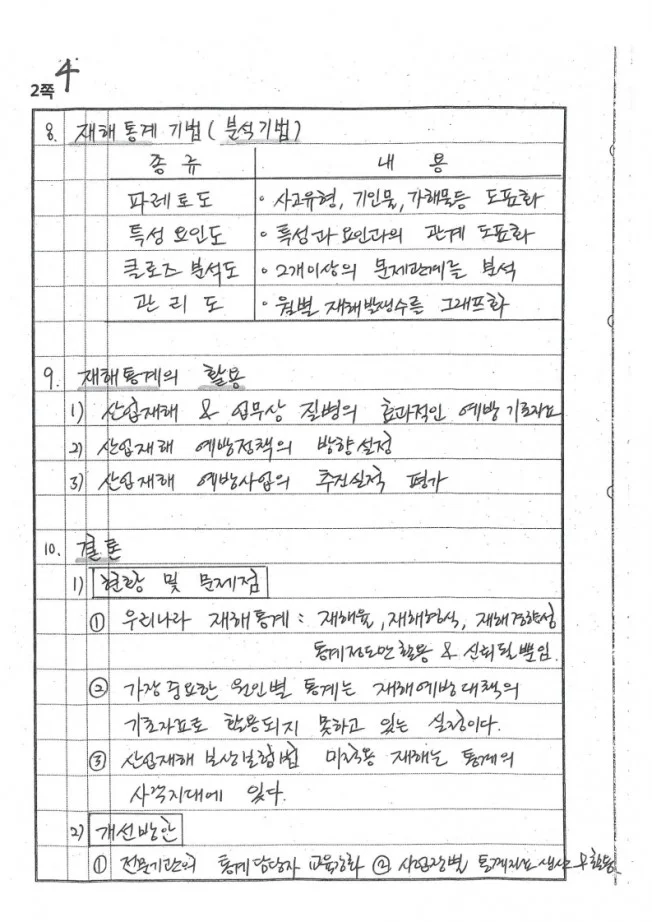 4
2쪽
8. 재해통계 기법 (분석기법)
종 류 내 용
파레토도 · 사고유형, 기인물, 가해물등 도표화
특성 요인도 · 특성과 요인과의 관계 도표화
클로즈 분석도 · 2개이상의 문제관계를 분석
관 리 도 · 월별 재해발생수를 그래프화
9. 재해통계의 활용
1) 산업재해 & 업무상 질병의 효과적인 예방 기초자료
2) 산업재해 예방정책의 방향설정
3) 산업재해 예방사업의 추진실적 평가
10. 결론
1) 현황 및 문제점
① 우리나라 재해통계 : 재해율, 재해형식, 재해경향성
통계정도만 활용 & 신뢰될 뿐임.
② 가장 중요한 원인별 통계는 재해예방대책의
기초자료로 활용되지 못하고 있는 실정이다.
③ 산업재해보상보험법 미적용 재해는 통계의
사각지대에 있다.
2) 개선방안
① 전문기관의 통계담당자 교육강화 ② 사업장별 통계자료 생산 & 활용